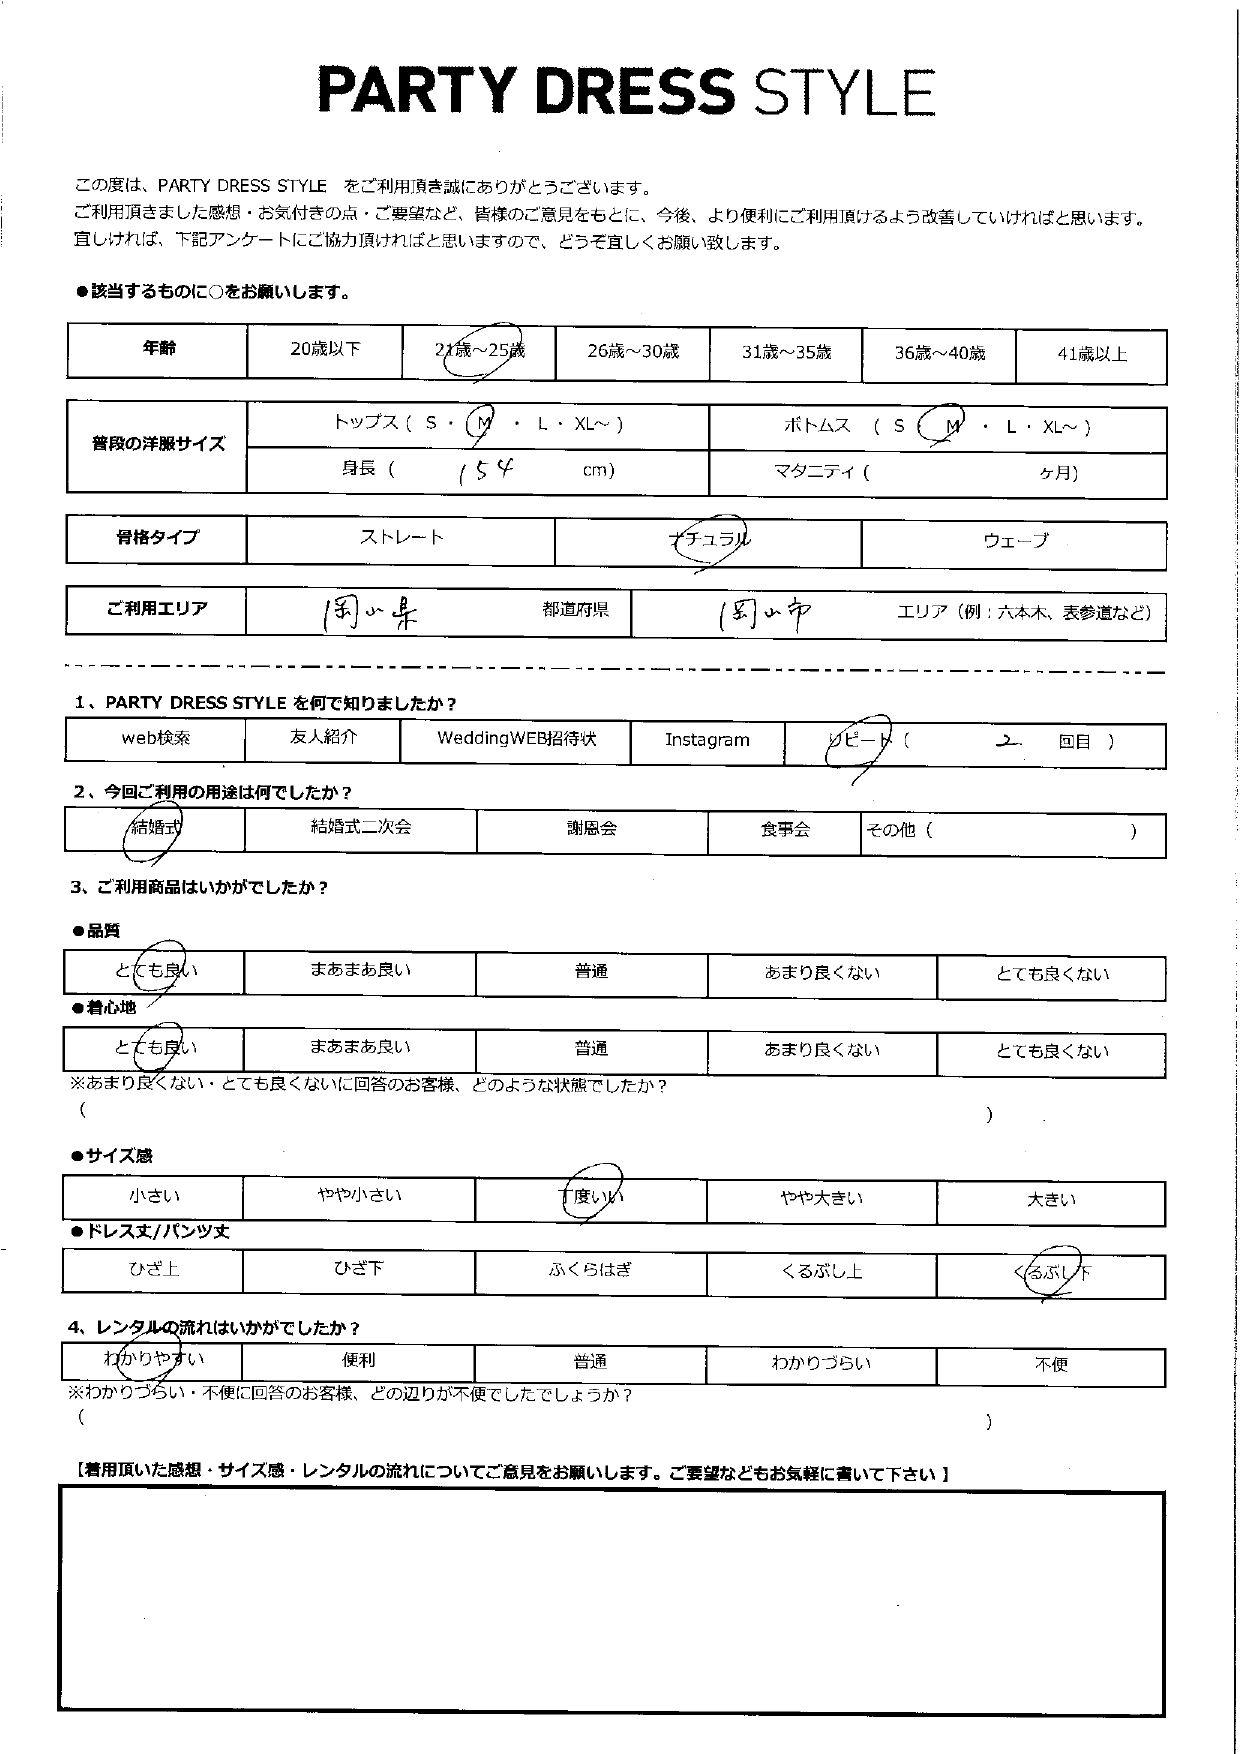 PARTY DRESS STYLE
この度は、PARTY DRESS STYLE をご利用頂き誠にありがとうございます。
ご利用頂きました感想・お気付きの点・ご要望など、皆様のご意見をもとに、今後、より便利にご利用頂けるよう改善していければと思います。
宜しければ、下記アンケートにご協力頂ければと思いますので、どうぞ宜しくお願い致します。
●該当するものに○をお願いします。
年齢 20歳以下 21歳～25歳 26歳～30歳 31歳～35歳 36歳～40歳 41歳以上
普段の洋服サイズ トップス ( S ・ M ・ L ・ XL～ ) ボトムス ( S ・ M ・ L ・ XL～ )
身長 ( 154 cm) マタニティ ( ヶ月)
骨格タイプ ストレート ナチュラル ウェーブ
ご利用エリア 岡山県 都道府県 岡山市 エリア（例：六本木、表参道など）
1、PARTY DRESS STYLE を何で知りましたか？
web検索 友人紹介 WeddingWEB招待状 Instagram リピート ( 2 回目 )
2、今回ご利用の用途は何でしたか？
結婚式 結婚式二次会 謝恩会 食事会 その他 ( )
3、ご利用商品はいかがでしたか？
●品質
とても良い まあまあ良い 普通 あまり良くない とても良くない
●着心地
とても良い まあまあ良い 普通 あまり良くない とても良くない
※あまり良くない・とても良くないに回答のお客様、どのような状態でしたか？
( )
●サイズ感
小さい やや小さい 丁度いい やや大きい 大きい
●ドレス丈/パンツ丈
ひざ上 ひざ下 ふくらはぎ くるぶし上 くるぶし下
4、レンタルの流れはいかがでしたか？
わかりやすい 便利 普通 わかりづらい 不便
※わかりづらい・不便に回答のお客様、どの辺りが不便でしたでしょうか？
( )
【着用頂いた感想・サイズ感・レンタルの流れについてご意見をお願いします。ご要望などもお気軽に書いて下さい 】